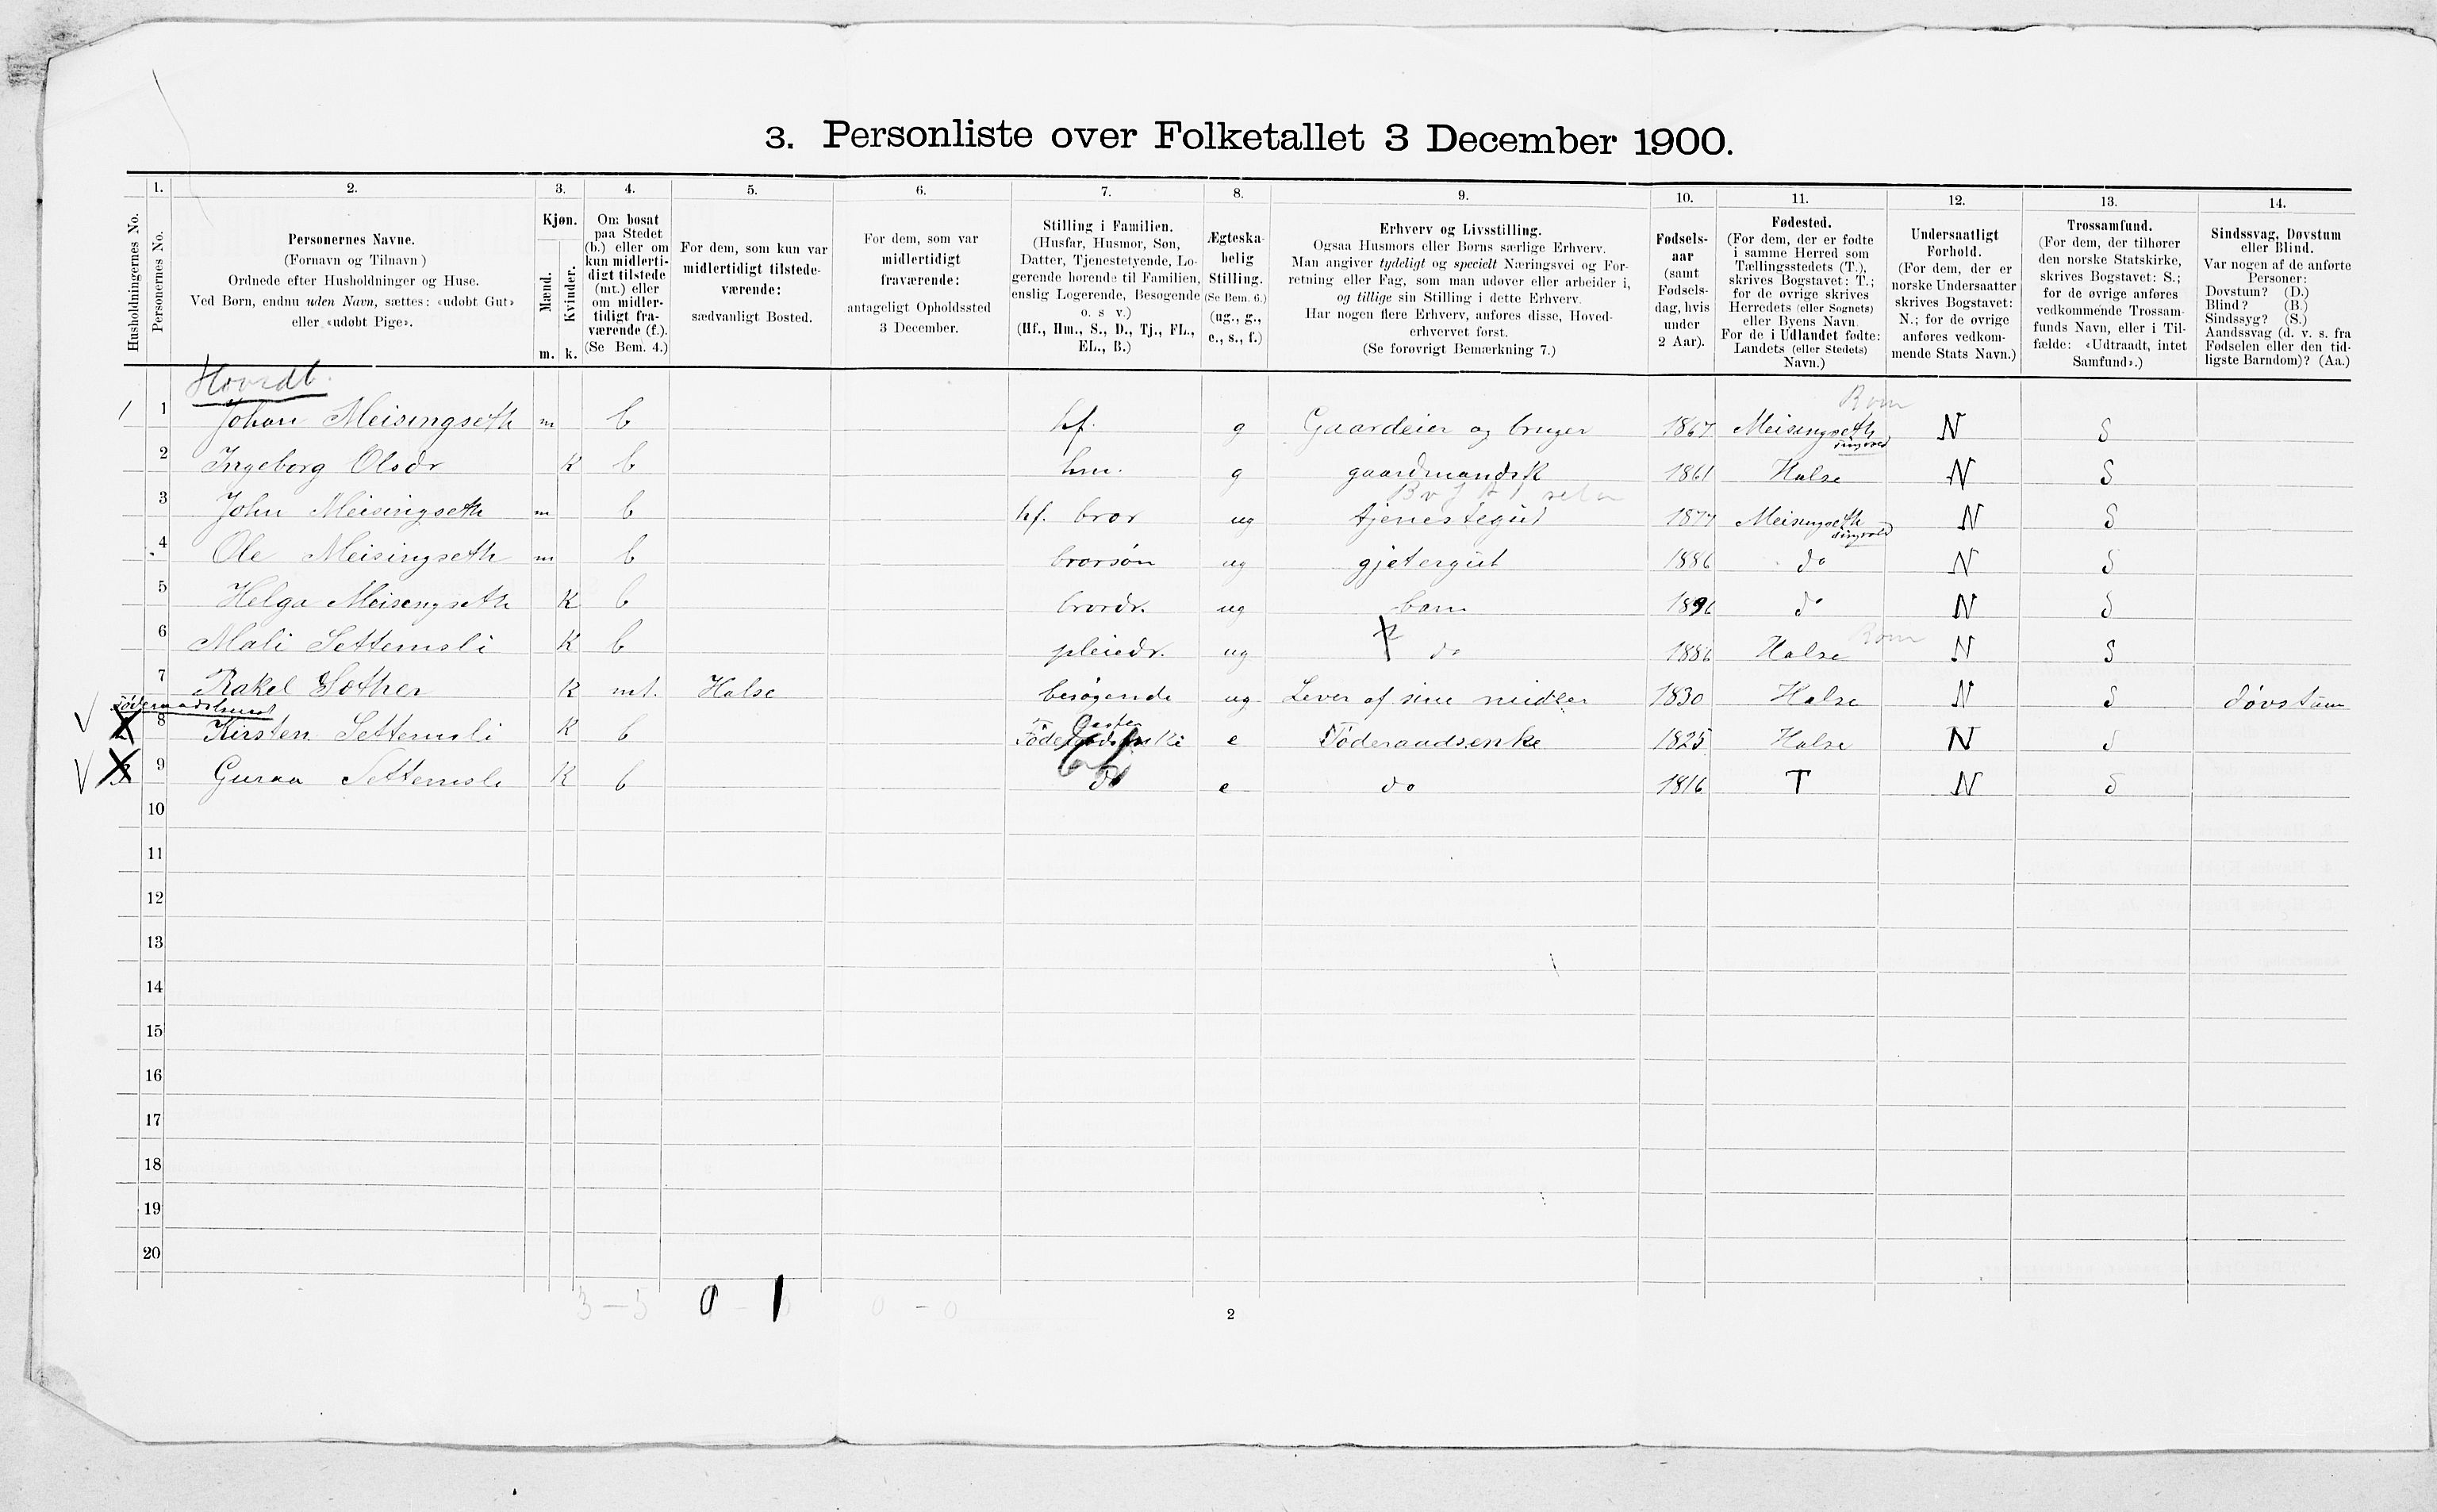 3. Personliste over Folketallet 3 December 1900.
Husholdningernes No.
1.
Personernes No.
2.
Personernes Navne.
(Fornavn og Tilnavn)
Ordnede efter Husholdninger og Huse.
Ved Børn, endnu uden Navn, sættes: «udøbt Gut»
eller «udøbt Pige».
3.
Kjøn.
Mænd.
Kvinder.
m. k.
4.
Om bosat
paa Stedet
(b.) eller om
kun midlerti-
digt tilstede
(mt.) eller
om midler-
tidigt fra-
værende (f.).
(Se Bem. 4.)
5.
For dem, som kun var
midlertidigt tilstede-
værende:
sædvanligt Bosted.
6.
For dem, som var
midlertidigt
fraværende:
antageligt Opholdssted
3 December.
7.
Stilling i Familien.
(Husfar, Husmor, Søn,
Datter, Tjenestetyende, Lo-
gerende hørende til Familien,
enslig Logerende, Besøgende
o. s v.)
(Hf., Hm., S., D., Tj., FL.,
EL., B.)
8.
Ægteska-
belig
Stilling.
(Se Bem. 6.)
(ug., g.,
e., s., f.)
9.
Erhverv og Livsstilling.
Ogsaa Husmors eller Børns særlige Erhverv.
Man angiver tydeligt og specielt Næringsvei og For-
retning eller Fag, som man udøver eller arbeider i,
og tillige sin Stilling i dette Erhverv.
Har nogen flere Erhverv, anføres disse, Hoved-
erhvervet først.
(Se forøvrigt Bemærkning 7.)
10.
Fødsels-
aar
(samt
Fødsels-
dag, hvis
under
2 Aar).
11.
Fødested.
(For dem, der er fødte
i samme Herred som
Tællingsstedets (T.),
skrives Bogstavet: T.;
for de øvrige skrives
Herredets (eller Sognets)
eller Byens Navn.
For de i Udlandet fødte:
Landets (eller Stedets)
Navn.)
12.
Undersaatligt
Forhold.
(For dem, der er
norske Undersaatter
skrives Bogstavet:
N.; for de øvrige
anføres vedkom-
mende Stats Navn.)
13.
Trossamfund.
(For dem, der tilhører
den norske Statskirke,
skrives Bogstavet: S.;
for de øvrige anføres
vedkommende Trossam-
funds Navn, eller i Til-
fælde: «Udtraadt, intet
Samfund».)
14.
Sindssvag, Døvstum
eller Blind.
Var nogen af de anførte
Personer:
Døvstum? (D.)
Blind? (B.)
Sindssyg? (S.)
Aandssvag (d. v. s. fra
Fødselen eller den tid-
ligste Barndom)? (Aa.)
Hovedb.
Rom
1 1 Johan Meisingseth m b hf. g Gaardeier og bruger 1867 Meisingseth N S
tingvold
2 Ingeborg Olsdr K b hm. g gaardmandsk 1861 Halse N S
3 John Meisingseth m b hf. bror ug tjenestegut 1877 Meisingseth N S
tingvold
4 Ole Meisingseth m b brorsøn ug gjetergut 1886 do N S
5 Helga Meisingseth K b brordr. ug barn 1896 do N S
6 Mali Settemsli K b pleiedr. ug do 1886 Halse Rom N S
7 Rakel Sæther K mt. Halse besøgende ug Lever af sine midler 1830 Halse N S døvstum
Føderaadshuset
8 Kirsten Settemsli K b Føderaadsenke e Føderaadsenke 1825 Halse N S
9 Guraa Settemsli K b do e do 1816 T N S
10
11
12
13
14
15
16
17
18
19
20
3 – 5 0 - 1 0 - 0
2